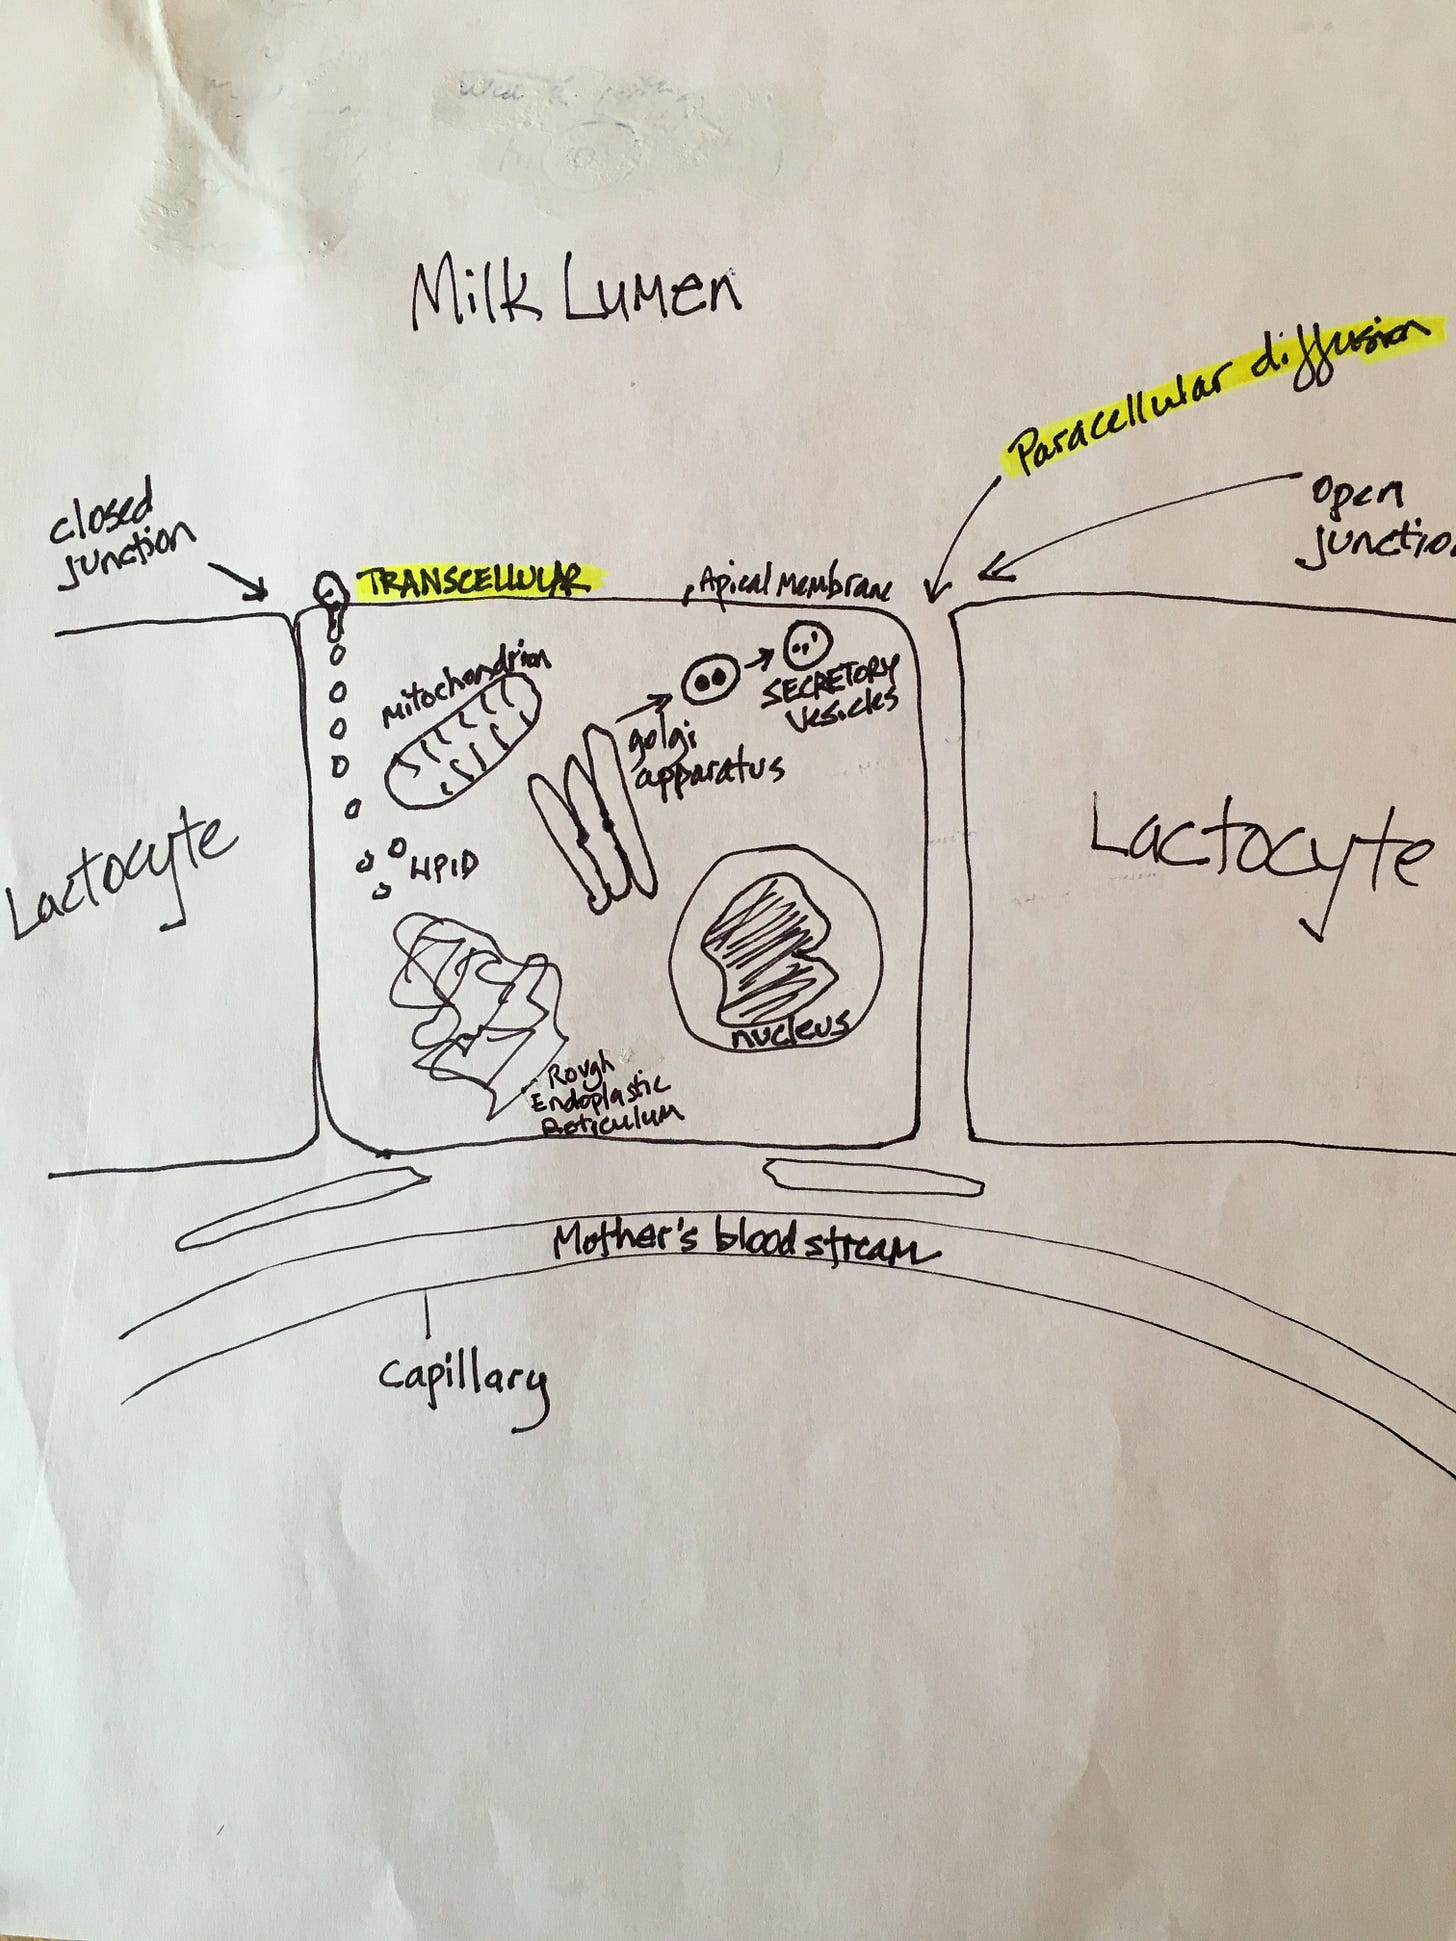 Milk Lumen
Paracellular diffusion
closed
junction
open
junctio
TRANSCELLULAR
Apical Membrane
Mitochondrion
SECRETORY
Vesicles
golgi
apparatus
Lactocyte
LIPID
Lactocyte
nucleus
Rough
Endoplastic
Reticulum
Mother's bloodstream
Capillary